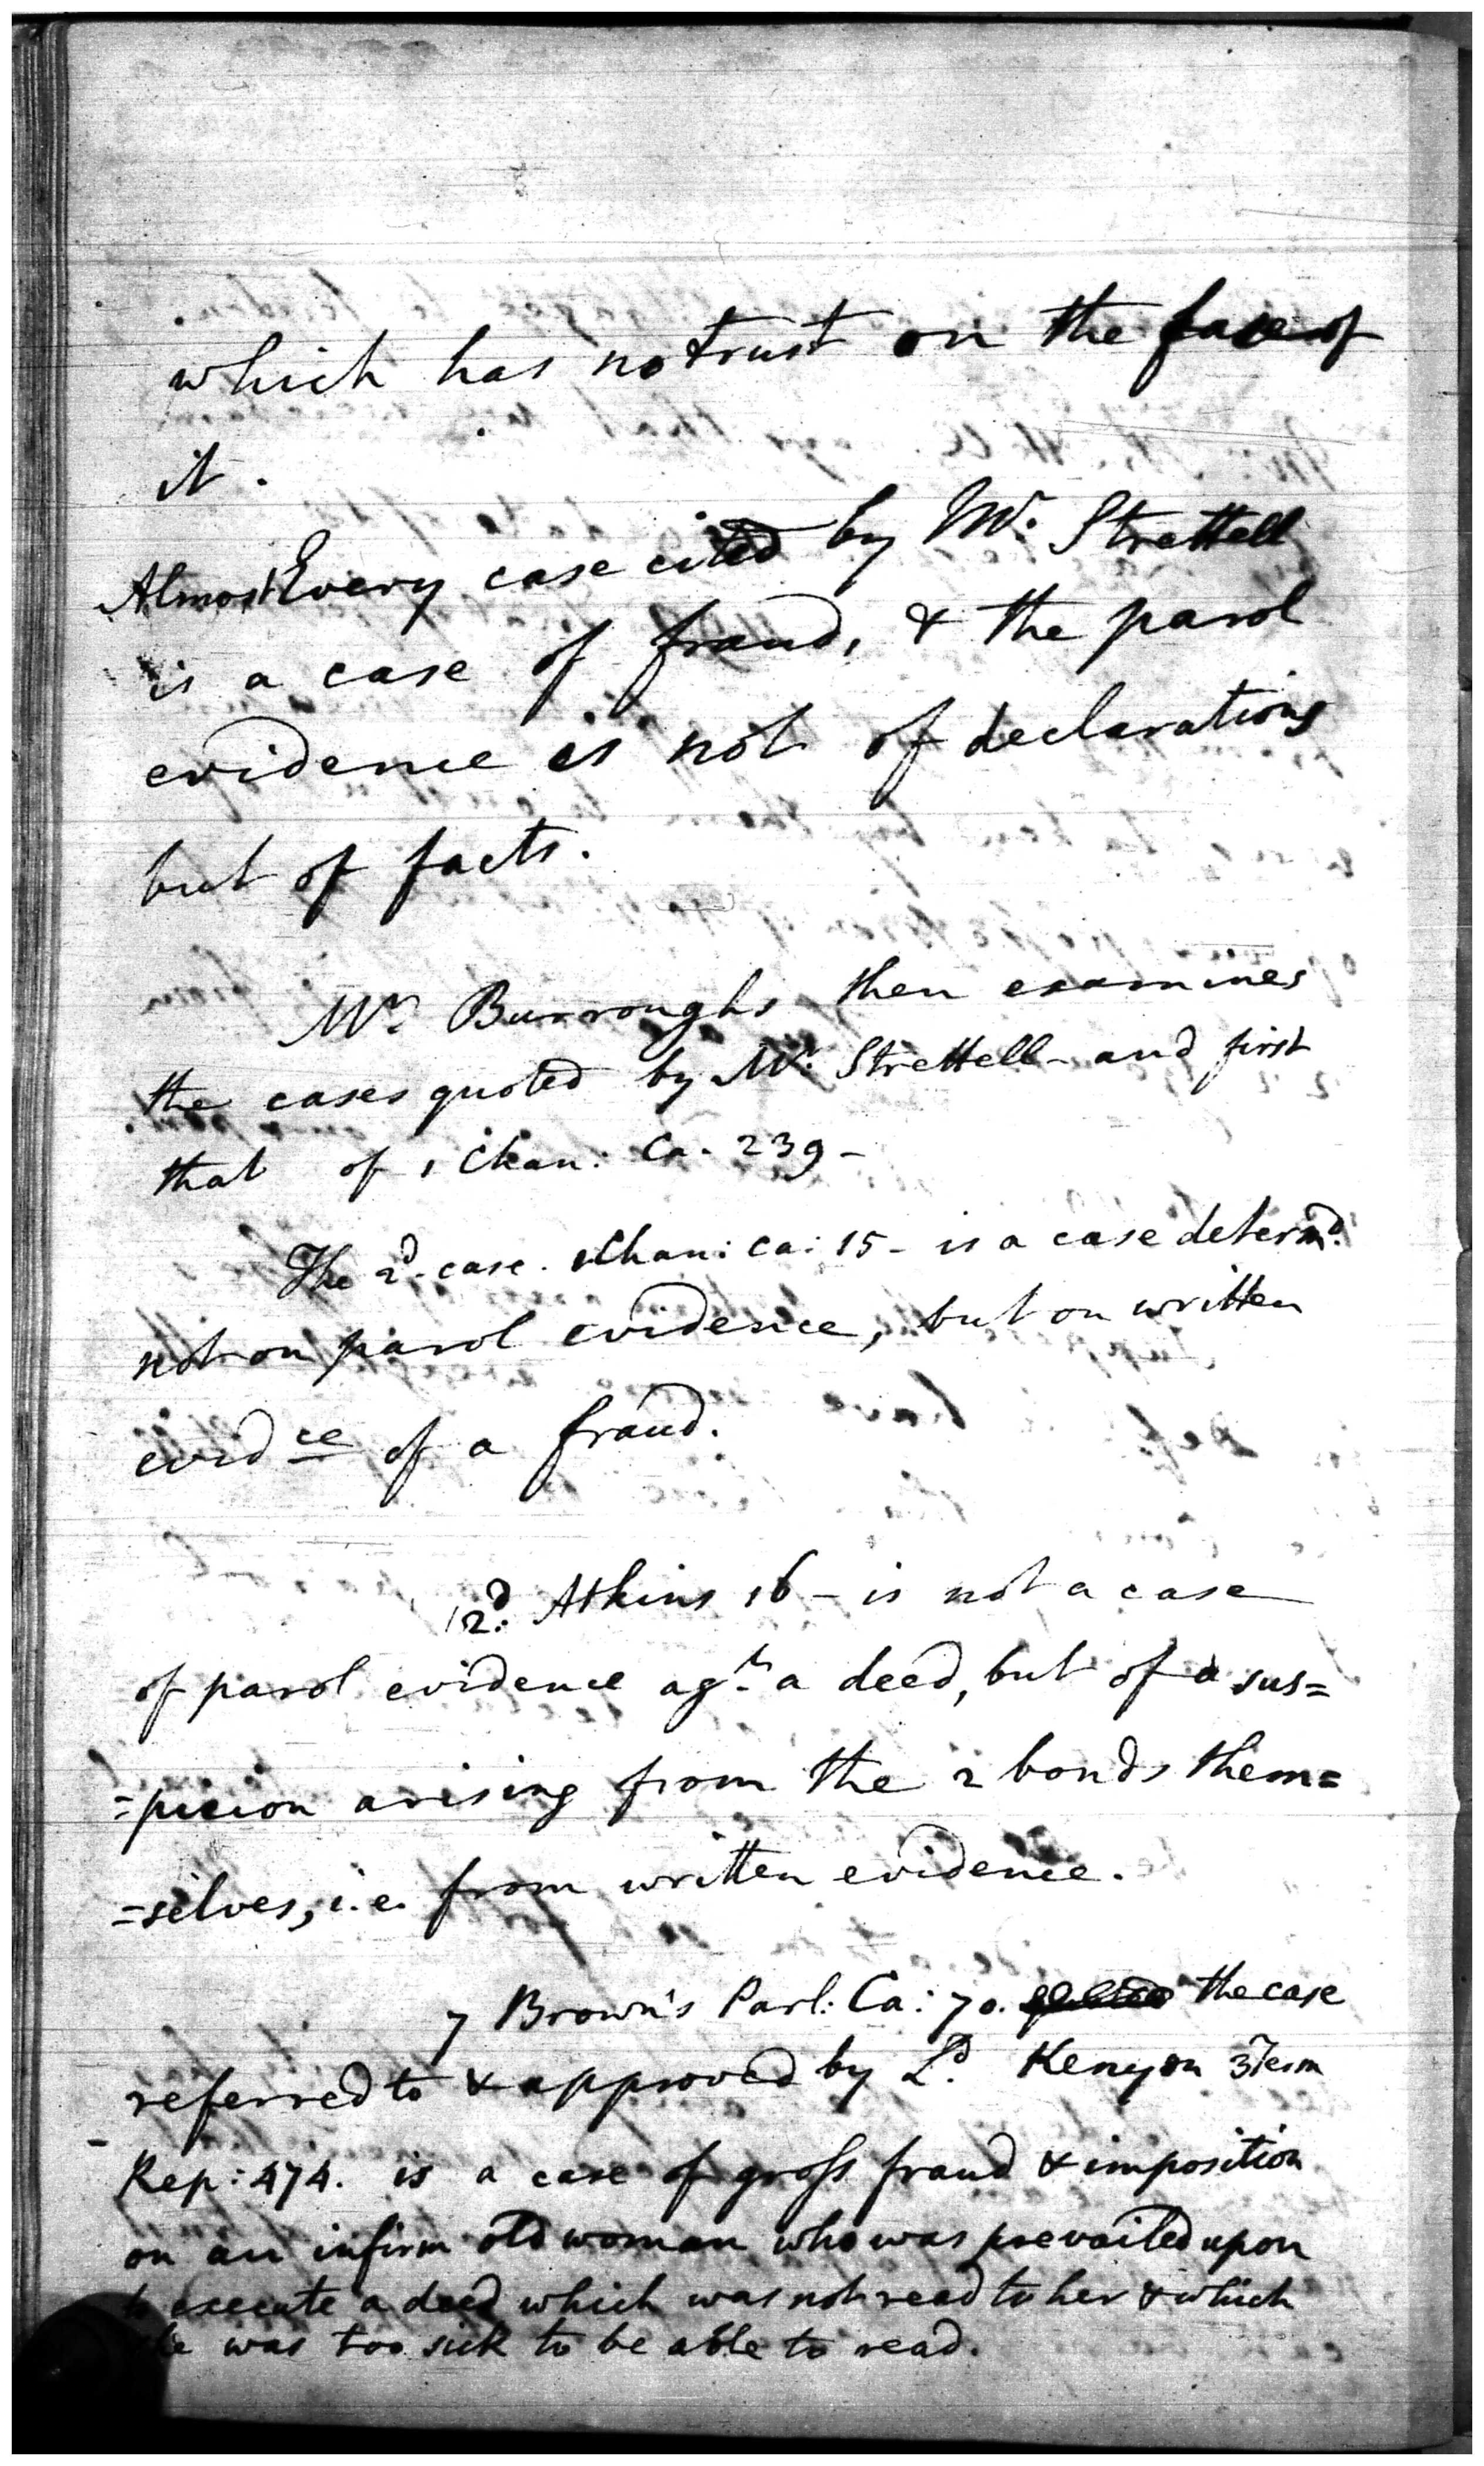 which has no trust on the face of
it.
Almost Every case cited by Mr. Strettell
is a case of fraud, & the parol
evidence is not of declarations
but of facts.
Mr. Burroughs then examines
the cases quoted by Mr. Strettell - and first
that of 1 Chan: Ca. 239 -
The 2d. case. 1 Chan: Ca: 15 - is a case determd.
not on parol evidence, but on written
evidce of a fraud.
2d. Atkins 16 - is not a case
of parol evidence agt. a deed, but of a sus=
=picion arising from the 2 bonds them=
=selves, i.e. from written evidence.
7 Brown's Parl: Ca: 70. the case
referred to & approved by Ld. Kenyon 3 Term
Rep: 474. is a case of gross fraud & imposition
on an infirm old woman who was prevailed upon
to execute a deed which was not read to her & which
she was too sick to be able to read.